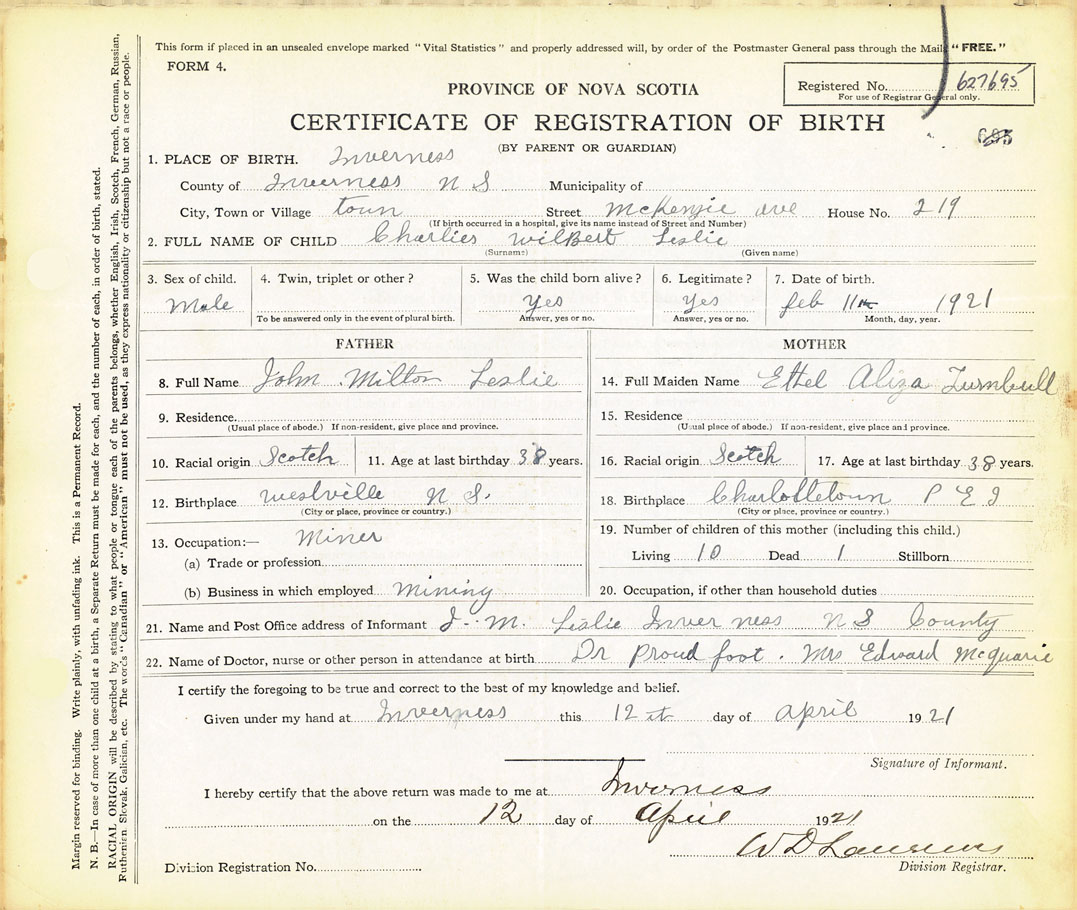 This form if placed in an unsealed envelope marked "Vital Statistics" and properly addressed will, by order of the Postmaster General pass through the Mail "FREE."
FORM 4.
Registered No. 627695
For use of Registrar General only.
PROVINCE OF NOVA SCOTIA
CERTIFICATE OF REGISTRATION OF BIRTH
(BY PARENT OR GUARDIAN)
1. PLACE OF BIRTH. Inverness
County of Inverness N S Municipality of
City, Town or Village town Street McKenzie ave House No. 219
(If birth occurred in a hospital, give its name instead of Street and Number)
2. FULL NAME OF CHILD Charlies Wilbert Leslie
(Surname) (Given name)
3. Sex of child. 4. Twin, triplet or other? 5. Was the child born alive? 6. Legitimate? 7. Date of birth.
Male Yes Yes feb 11th 1921
To be answered only in the event of plural birth. Answer, yes or no. Answer, yes or no. Month, day, year.
FATHER
8. Full Name John Milton Leslie
9. Residence.
(Usual place of abode.) If non-resident, give place and province.
10. Racial origin Scotch 11. Age at last birthday 38 years.
12. Birthplace Westville N S.
(City or place, province or country.)
13. Occupation:— Miner
(a) Trade or profession
(b) Business in which employed mining
MOTHER
14. Full Maiden Name Ethel Aliza Turnbull
15. Residence
(Usual place of abode.) If non-resident, give place and province.
16. Racial origin Scotch 17. Age at last birthday 38 years.
18. Birthplace Charlottetown P E I
(City or place, province or country.)
19. Number of children of this mother (including this child.)
Living 10 Dead 1 Stillborn
20. Occupation, if other than household duties
21. Name and Post Office address of Informant J. M. Leslie Inverness N S County
22. Name of Doctor, nurse or other person in attendance at birth Dr Proud foot. Mrs Edward McQuarie
I certify the foregoing to be true and correct to the best of my knowledge and belief.
Given under my hand at Inverness this 12 day of april 1921
Signature of Informant.
I hereby certify that the above return was made to me at Inverness
on the 12 day of April 1921
W D Lawrence
Division Registration No. Division Registrar.
Margin reserved for binding. Write plainly, with unfading ink. This is a Permanent Record.
N. B.—In case of more than one child at a birth, a Separate Return must be made for each, and the number of each, in order of birth, stated.
RACIAL ORIGIN will be described by stating to what people or tongue each of the parents belongs, whether English, Irish, Scotch, French, German, Russian,
Ruthenian, Slovak, Galician, etc. The words "Canadian" or "American" must not be used, as they express nationality or citizenship but not a race or people.